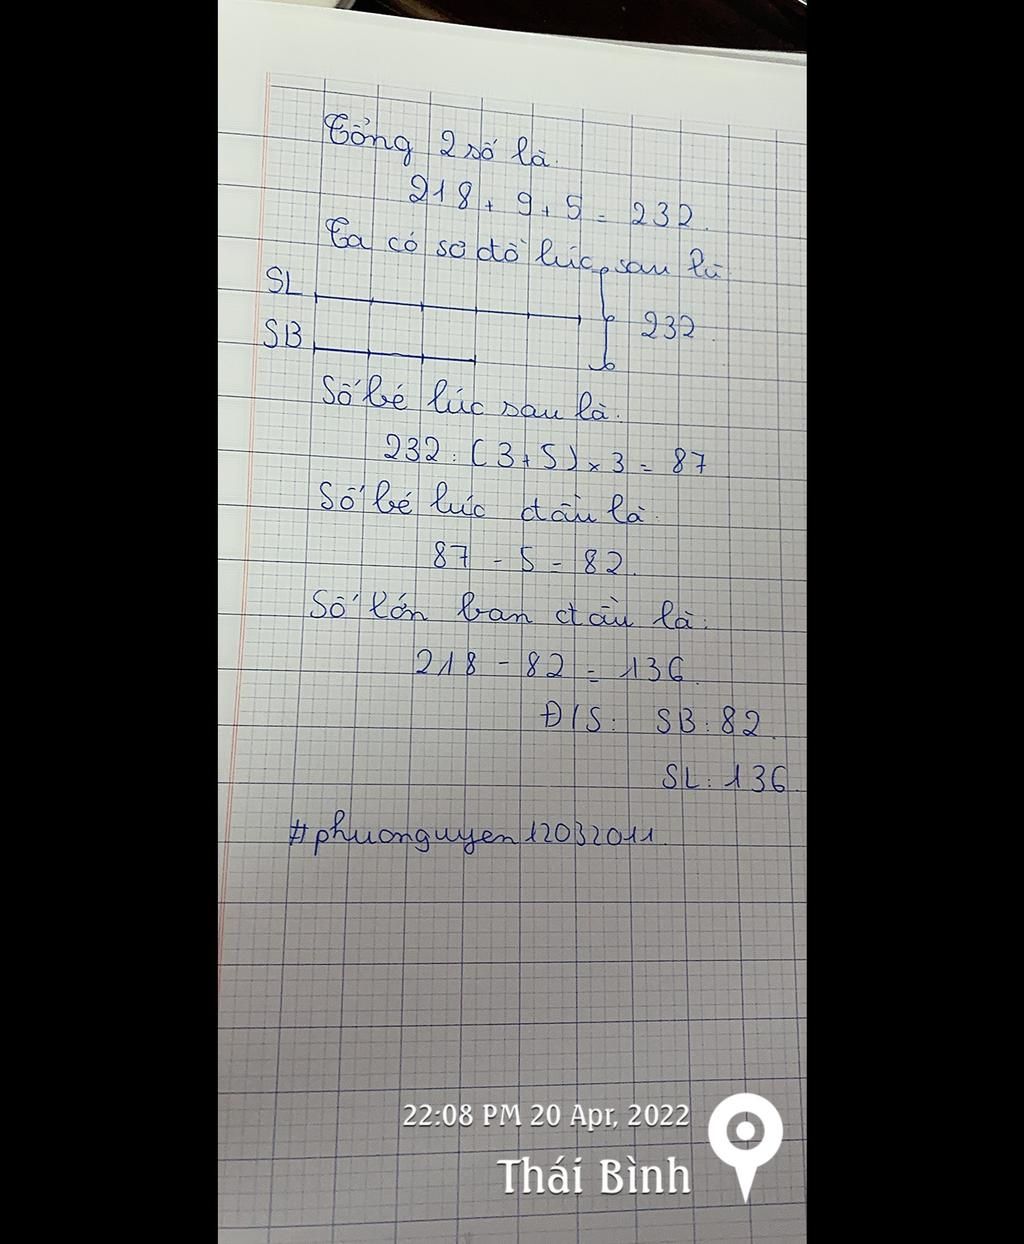 Tổng 2 số là.
218 + 9 + 5 = 232.
Ta có sơ đồ lúc sau là
SL
232.
SB
Số bé lúc sau là.
232 : (3 + 5) × 3 = 87
Số bé lúc đầu là.
87 - 5 = 82.
Số lớn ban đầu là:
218 - 82 = 136.
Đ/S: SB: 82.
SL: 136.
#phuonguyen12032011.
22:08 PM 20 Apr, 2022
Thái Bình